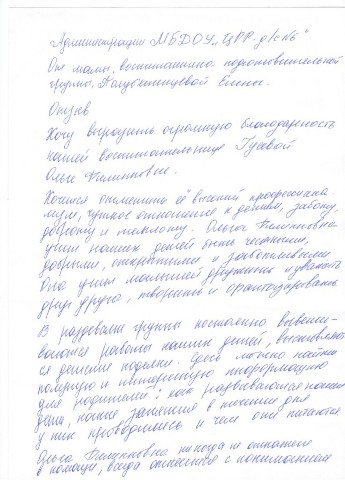 Администрации МБДОУ „ЦРР-д/с №6"
От мамы, воспитанника подготовительной
группы, Голубятниковой Елены.
Отзыв
Хочу выразить огромную благодарность
нашей воспитательнице Гуевой
Ольге Филипповне.
Хочется отметить её высокий профессиона-
лизм, чуткое отношение к детям, заботу,
доброту и теплоту. Ольга Филипповна
учит наших детей быть честными,
добрыми, открытыми и заботливыми
Она учит малышей дружить и уважать
друг друга, творить и фантазировать
В раздевалке группы постоянно вывеши-
ваются работы наших детей, выставляют-
ся детские поделки. Здесь можно найти
полезную и интересную информацию
для родителей: как развиваются наши
дети, какие занятия в течении дня
у них проводились и чем они питаются.
Ольга Филипповна никогда не откажет
в помощи, всегда отнесётся с пониманием